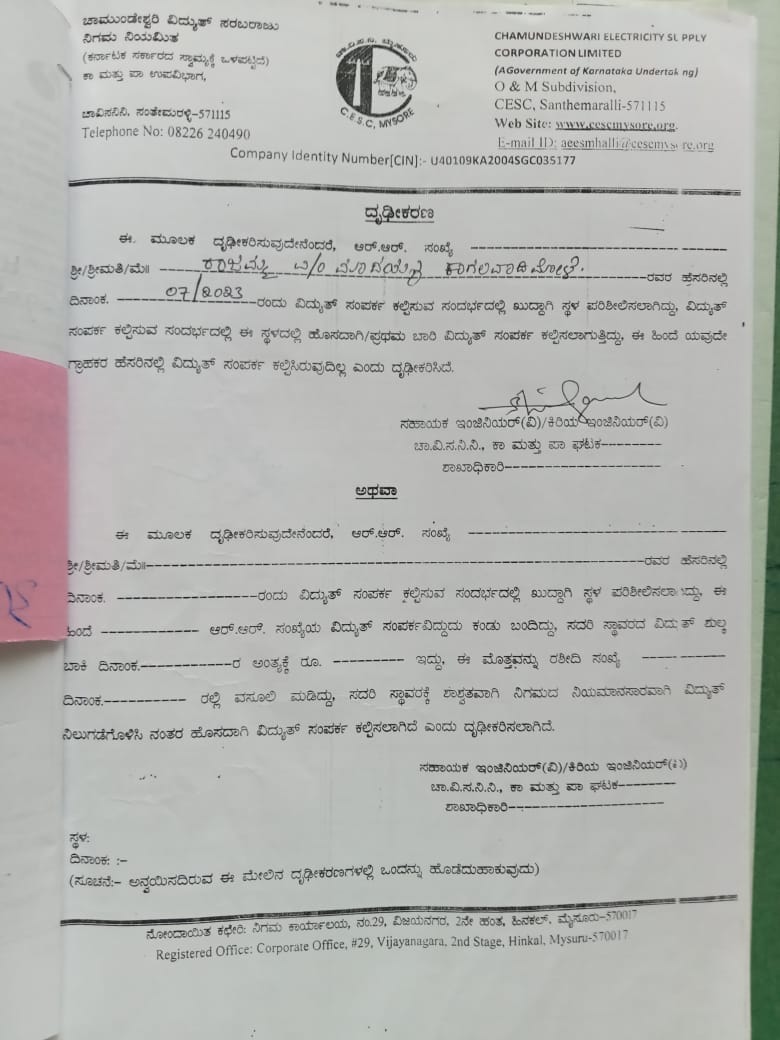 ಚಾಮುಂಡೇಶ್ವರಿ ವಿದ್ಯುತ್ ಸರಬರಾಜು
ನಿಗಮ ನಿಯಮಿತ
(ಕರ್ನಾಟಕ ಸರ್ಕಾರದ ಸ್ವಾಮ್ಯಕ್ಕೆ ಒಳಪಟ್ಟಿದೆ)
ಕಾ ಮತ್ತು ಪಾ ಉಪವಿಭಾಗ,
ಚಾವಿಸನಿನಿ, ಸಂತೇಮರಳ್ಳಿ-571115
Telephone No: 08226 240490
ಚಾ.ವಿ.ಸ.ನಿ. ಮೈಸೂರು
C.E.S.C, MYSORE
CHAMUNDESHWARI ELECTRICITY SUPPLY
CORPORATION LIMITED
(AGovernment of Karnataka Undertaking)
O & M Subdivision,
CESC, Santhemaralli-571115
Web Site: www.cescmysore.org.
E-mail ID: aeesmhalli@cescmysore.org
Company Identity Number[CIN]:- U40109KA2004SGC035177
ದೃಢೀಕರಣ
ಈ ಮೂಲಕ ದೃಢೀಕರಿಸುವುದೇನೆಂದರೆ, ಆರ್.ಆರ್. ಸಂಖ್ಯೆ --------------------
ಶ್ರೀ/ಶ್ರೀಮತಿ/ಮೆ॥ ರಾಜಮ್ಮ ವಿ/ಂ ಮಾದಯ್ಯ ಕಾಗಲವಾಡಿ ಮೋಳೆ. ರವರ ಹೆಸರಿನಲ್ಲಿ
ದಿನಾಂಕ. 07/2023 ರಂದು ವಿದ್ಯುತ್ ಸಂಪರ್ಕ ಕಲ್ಪಿಸುವ ಸಂದರ್ಭದಲ್ಲಿ ಖುದ್ದಾಗಿ ಸ್ಥಳ ಪರಿಶೀಲಿಸಲಾಗಿದ್ದು, ವಿದ್ಯುತ್
ಸಂಪರ್ಕ ಕಲ್ಪಿಸುವ ಸಂದರ್ಭದಲ್ಲಿ ಈ ಸ್ಥಳದಲ್ಲಿ ಹೊಸದಾಗಿ/ಪ್ರಥಮ ಬಾರಿ ವಿದ್ಯುತ್ ಸಂಪರ್ಕ ಕಲ್ಪಿಸಲಾಗುತ್ತಿದ್ದು, ಈ ಹಿಂದೆ ಯವುದೇ
ಗ್ರಾಹಕರ ಹೆಸರಿನಲ್ಲಿ ವಿದ್ಯುತ್ ಸಂಪರ್ಕ ಕಲ್ಪಿಸಿರುವುದಿಲ್ಲ ಎಂದು ದೃಢೀಕರಿಸಿದೆ.
ಸಹಾಯಕ ಇಂಜಿನಿಯರ್(ವಿ)/ಕಿರಿಯ ಇಂಜಿನಿಯರ್(ವಿ)
ಚಾ.ವಿ.ಸ.ನಿ.ನಿ., ಕಾ ಮತ್ತು ಪಾ ಘಟಕ--------
ಶಾಖಾಧಿಕಾರಿ--------------------
ಅಥವಾ
ಈ ಮೂಲಕ ದೃಢೀಕರಿಸುವುದೇನೆಂದರೆ, ಆರ್.ಆರ್. ಸಂಖ್ಯೆ --------------------
ಶ್ರೀ/ಶ್ರೀಮತಿ/ಮೆ॥--------------------ರವರ ಹೆಸರಿನಲ್ಲಿ
ದಿನಾಂಕ. --------------------ರಂದು ವಿದ್ಯುತ್ ಸಂಪರ್ಕ ಕಲ್ಪಿಸುವ ಸಂದರ್ಭದಲ್ಲಿ ಖುದ್ದಾಗಿ ಸ್ಥಳ ಪರಿಶೀಲಿಸಲಾಗಿದ್ದು, ಈ
ಹಿಂದೆ ------------- ಆರ್.ಆರ್. ಸಂಖ್ಯೆಯ ವಿದ್ಯುತ್ ಸಂಪರ್ಕವಿದ್ದುದು ಕಂಡು ಬಂದಿದ್ದು, ಸದರಿ ಸ್ಥಾವರದ ವಿದ್ಯುತ್ ಶುಲ್ಕ
ಬಾಕಿ ದಿನಾಂಕ.-------------ರ ಅಂತ್ಯಕ್ಕೆ ರೂ. ---------- ಇದ್ದು, ಈ ಮೊತ್ತವನ್ನು ರಶೀದಿ ಸಂಖ್ಯೆ -----------
ದಿನಾಂಕ.----------- ರಲ್ಲಿ ವಸೂಲಿ ಮಡಿದ್ದು, ಸದರಿ ಸ್ಥಾವರಕ್ಕೆ ಶಾಶ್ವತವಾಗಿ ನಿಗಮದ ನಿಯಮಾನಸಾರವಾಗಿ ವಿದ್ಯುತ್
ನಿಲುಗಡೆಗೊಳಿಸಿ ನಂತರ ಹೊಸದಾಗಿ ವಿದ್ಯುತ್ ಸಂಪರ್ಕ ಕಲ್ಪಿಸಲಾಗಿದೆ ಎಂದು ದೃಢೀಕರಿಸಲಾಗಿದೆ.
ಸಹಾಯಕ ಇಂಜಿನಿಯರ್(ವಿ)/ಕಿರಿಯ ಇಂಜಿನಿಯರ್(ವಿ)
ಚಾ.ವಿ.ಸ.ನಿ.ನಿ., ಕಾ ಮತ್ತು ಪಾ ಘಟಕ--------
ಶಾಖಾಧಿಕಾರಿ--------------------
ಸ್ಥಳ:
ದಿನಾಂಕ: :-
(ಸೂಚನೆ:- ಅನ್ವಯಿಸದಿರುವ ಈ ಮೇಲಿನ ದೃಢೀಕರಣಗಳಲ್ಲಿ ಒಂದನ್ನು ಹೊಡೆದುಹಾಕುವುದು)
ನೋಂದಾಯಿತ ಕಛೇರಿ: ನಿಗಮ ಕಾರ್ಯಾಲಯ, ನಂ.29, ವಿಜಯನಗರ, 2ನೇ ಹಂತ, ಹಿನಕಲ್, ಮೈಸೂರು-570017
Registered Office: Corporate Office, #29, Vijayanagara, 2nd Stage, Hinkal, Mysuru-570017